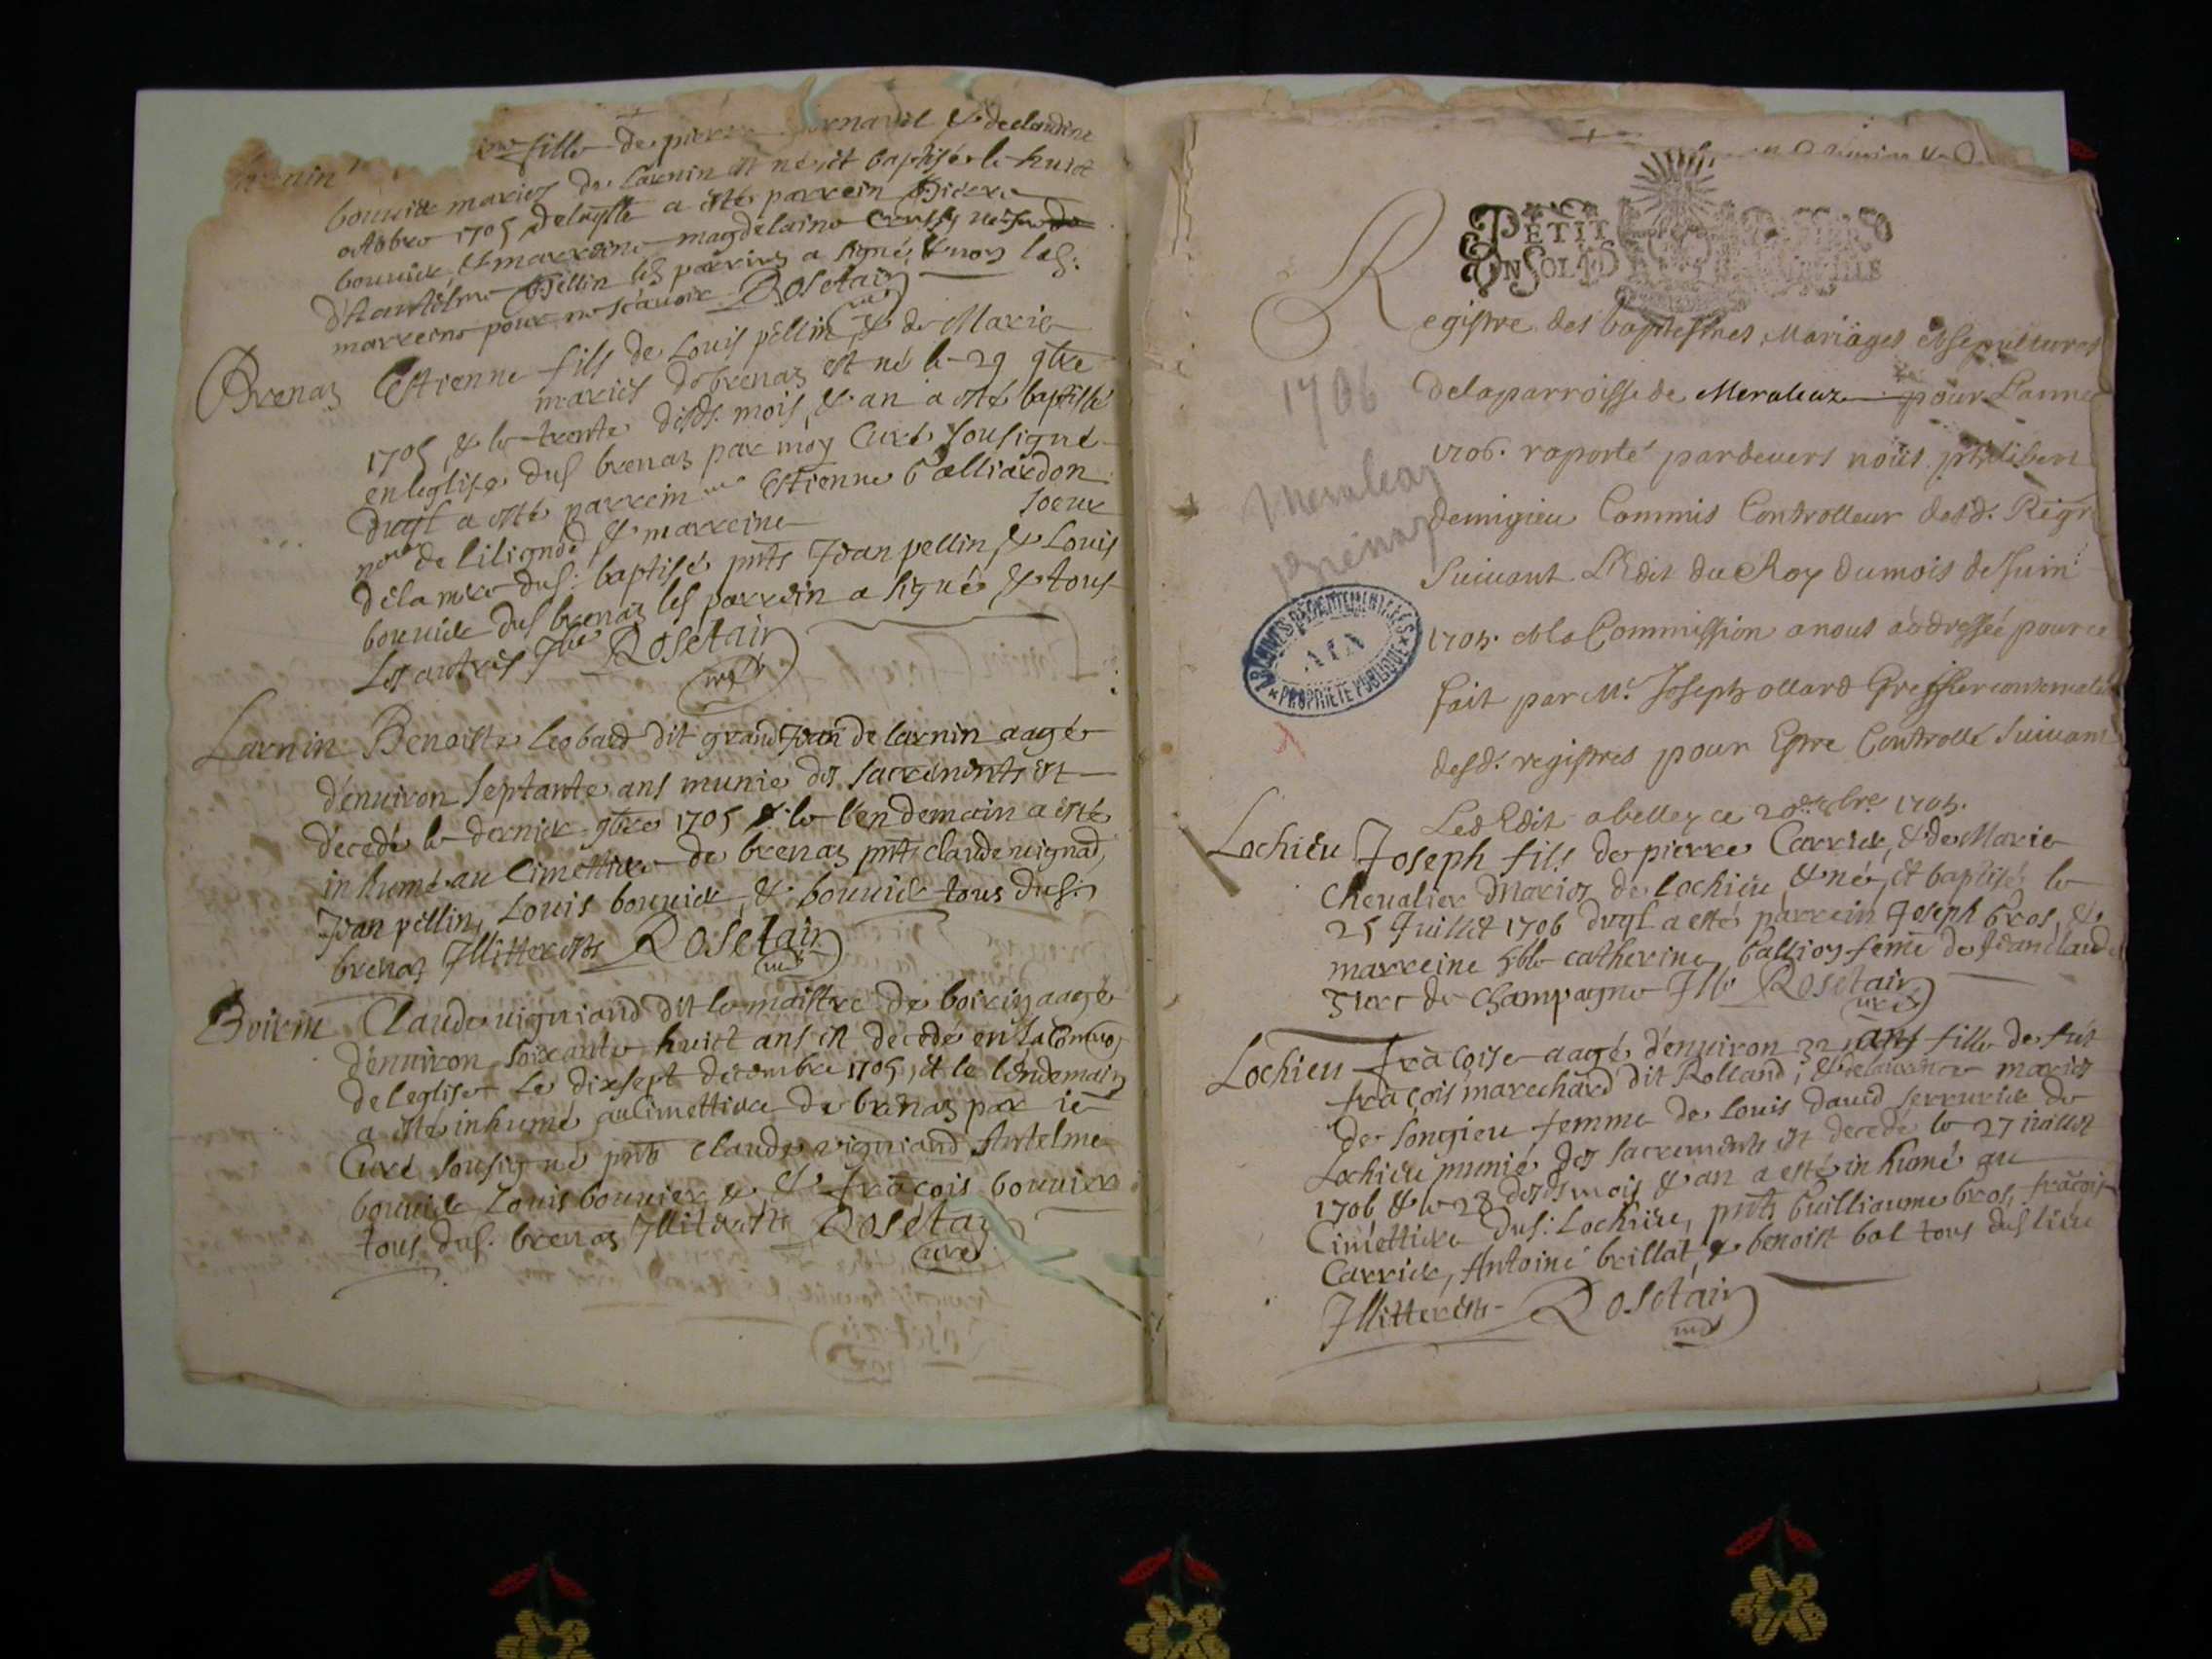 fille de pierre & declaudine
bouvier mariez de Larnin est né, et baptisée le huict
octobre 1705 delaqlle a esté parrein Pierre
bouvier & marreine magdelaine
d'Hantélme Pellin les parrein a signé, & non lad:
marreine pour ne scavoir Rosetain
curé
Brenaz Estienne fils de Louis pellin, & de Marie
mariés de brenaz est né le 29 9bre
1705, & le trente desds. mois, & an a esté baptisé
en leglise dud brenaz par moy Curé sousigné
duql a esté parrein me Estienne Galliardon
nore de lilignod, & marreine soeur
de la mere dud: baptisé pnts Jean pellin, & Louis
bouvier dud brenaz les parrein a signé & tous
Les autres Illrés Rosetain
curé
Larnin Benoiste Leobard dit grand Jean de larnin aagé
d'environ septante ans munie des sacrements est
décédé le dernier 9bre 1705 & le l'endemain a esté
inhumé au Cimettiere de brenaz pnts claude vignad,
Jean pellin, Louis bouvier, & bouvier tous dud:
brenaz Illitterés Rosetain
curé
Boirin Claude vigniand dit le maistre de boirin aagé
d'environ soixante huict ans est decedé en La Comuon
de leglise Le dixsept decembre 1705, et le lendemain
a esté inhumé au Cimettiere de brenaz par ie
Curé sousigné pnts Claude vigniand Antelme
bouvier Louis bouvier & & frãçois bouvier
tous dud. brenaz Illiterés Rosetain
curé
PETIT
UN SOL
Registre des baptesmes, Mariages et sepultures
de la parroisse de Meraleaz pour L'année
1706. raporté pardevers nous philibert
demigieu Commis Controlleur desd. Regres
Suivant L'Edit du Roy du mois de Juin
1705. et la Commission a nous addressée pour ce
fait par Mr. Joseph ollard Greffier conservateur
desd. registres pour Estre Controllé Suivant
Led Edit a belley ce 20e xbre 1705.
1706
Meraleaz
Brénaz
ARCHIVES DÉPARTEMENTALES
AIN
PROPRIÉTÉ PUBLIQUE
Lochieu Joseph fils de pierre Carrier, & de Marie
Chevalier Mariez de Lochieu & né, et baptisé le
25 Juillet 1706 duql a esté parrein Joseph Gros, &
marreine hble catherine Gallion femme de Jean claude
de Champagne Illr Rosetain
curé
Lochieu frãçoise aagé d'environ 32 ans fille de fut
frãçois marechard dit Rolland, & mariez
de Songieu femme de Louis David serrurier de
Lochieu munie des sacrements est decedé le 27 iuillet
1706 & le 28 desds mois & an a esté inhumé au
Cimettiere dud: Lochieu, pnts Guilliaume Gros, frãçois
Carrier, Antoine brillat, & benoist bal tous dud lieu
Illitterés Rosetain
curé